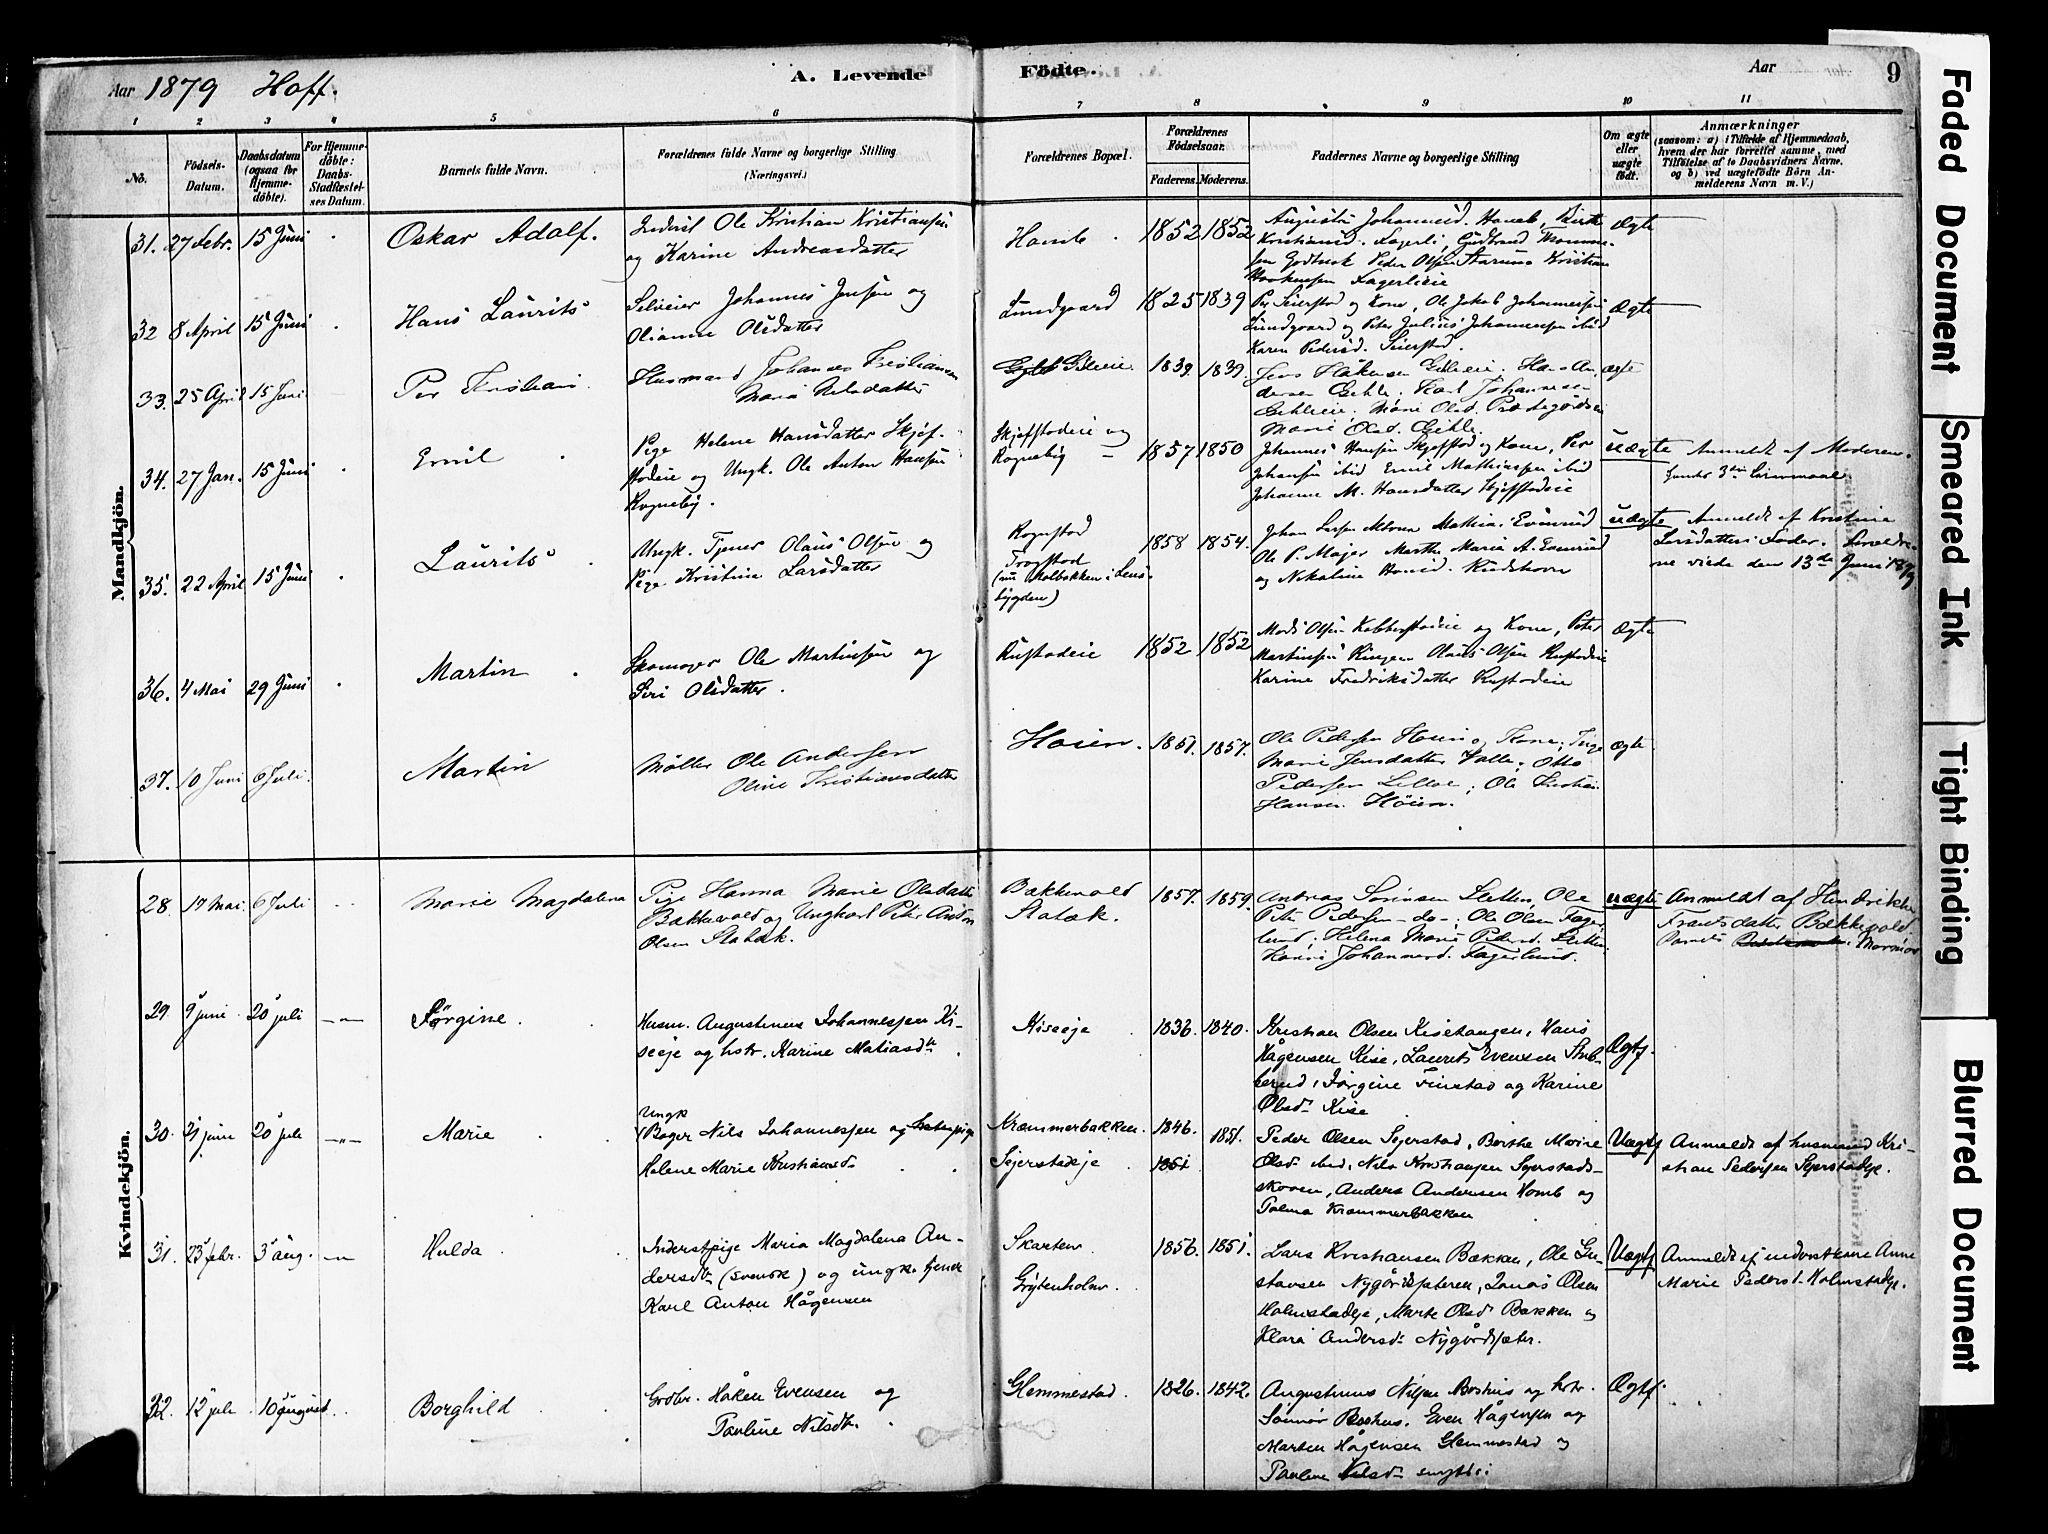 Aar 1879 Hoff. A. Levende Födte. Aar 9
1 2 3 4 5 6 7 8 9 10 11
No. Födsels-Datum. Daabsdatum (ogsaa for Hjemme-döbte). For Hjemme-döbte: Daabs-Stadfæstel-ses Datum. Barnets fulde Navn. Forældrenes fulde Navne og borgerlige Stilling (Næringsvei.) Forældrenes Bopæl. Forældrenes Födselsaar. Faderens. Moderens. Faddernes Navne og borgerlige Stilling Om ægte eller uægte födt. Anmærkninger (saasom: a) i Tilfælde af Hjemmedaab, hvem der har forrettet samme, med Tilföielse af to Daabsvidners Navne, og b) ved uægtefödte Börn An-melderens Navn m. V.)
Mandkjön.
31. 27 Febr. 15 Juni Oskar Adolf. Inderst Ole Kristian Kristiansen
og Karine Andreasdatter
1852 1852
Fagerli, Gudbrand
Peder Olsen Kristian
Fagerlieie
Ægte
32 8 April 15 Juni Hans Laurits Selveier Johannes Jensen og
Olianna Olsdatter
Lundgaard 1825 1839
Per Seierstad og Kone, Ole Jakob Johannessen
Lundgaard og Peter Julius Johannessen ibid
Karen Pedersd. Seierstad.
Ægte
33. 25 April 15 Juni Per Kristian. Husmand Johannes Kristiansen
Maria Nilsdatter
1839. 1839.
Jens Håkensen
Karl Johannesen
Marie Olsd.
ægte
34. 27 Jan. 15 Juni Emil Pige Helene Hansdatter Skjef-
stadeie og Ungk. Ole Anton Hansen
Rogneby.
Skjefstadeie og
Rogneby
1857 1850
Johannes Hansen Skjefstad og Kone, Per
Johansen ibid Emil Mathiassen ibid
Johanne M. Hansdatter Skjefstadeie
uægte Anmeldt af Moderen.
35. 22 April 15 Juni Laurits Ungk. Tjener Olaus Olsen og
Pige Kristine Larsdatter
Rognstad
(nu Kolbækken i Lens-
bygden)
1858 1854.
Johan Larsen
Ole P. Majer Marthe Marie A.
og Nikoline
uægte Anmeldt af Kristine
Larsdatters Fader. Foreldre-
ne viede den 13de Juni 1879
36. 4 Mai 29 Juni Martin Skomager Ole Martinsen og
Siri Olsdatter.
Rustadeie 1852 1852
Mads Olsen Kobberstadeie og Kone, Peter
Martinsen Ringen Olaus Olsen Rustadeie
Karine Fredriksdatter Rustadeie
Ægte
37. 10 Juni 6 Juli. Martin Møller Ole Andersen
Oline Kristiansdatter
Høien. 1851. 1857.
Ole Pedersen Høien og Kone; Pige
Marie Jensdatter Otto
Pedersen Ole Kristian
Hansen Høien.
ægte
Kvindekjön.
28. 17 Mai 6 Juli Marie Magdalena Pige Hanna Marie Olsdatter
Bækkevold og Ungkarl Peter Anton
Olsen Slatæk.
Bækkevold
Slatæk.
1857. 1859.
Andreas Sørensen Sletten, Ole
Peter Pedersen - do -; Ole Olsen Fager-
lund; Helena Marie Pedersd. Sletten
Johannesd. Fagerlund.
uægte Anmeldt af Hendrikke
Frantsdatter Bækkevold.
Barnets Mormor
29. 9 juni 20 juli Jørgine. Husm. Augustinus Johannessen Ki-
seeje og hstr. Karine Matiasdtr.
Kiseeje 1836. 1840.
Kristian Olsen Kisetangen, Hans
Hågensen Kise, Laurits Evensen Stub-
berud, Jørgine Finstad og Karine
Olsdtr Kise
Ægte.
30. 21 juni 20 juli Marie Ungk
Bager Nils Johannessen og
Helene Marie Kristiansdtr
Krammerbakken.
Sejerstadeje
1846. 1851.
1851
Peder Olsen Sejerstad, Berthe Marie
Olsdtr ibid, Nils Kristiansen Sejerstads-
skoven, Anders Andersen Homb og
Palma Krammerbakken
Uægte Anmeldt af husmand Kri-
stian Pedersen Sejerstadeje.
31. 23 febr. 3 aug. Hulda Inderstpige Maria Magdalena An-
dersdtr (svensk) og ungk. tjener
Karl Anton Hågensen
Skarten
Grytenholm.
1856. 1851.
Lars Kristiansen Bækken, Ole Gu-
stavsen Nygårdsæteren, Jonas Olsen
Holmstadeje, Marte Olsdtr Bækken og
Klara Andersdtr Nygårdsæter.
Uægte Anmeldt af inderstkone Anne
Marie Pedersd. Holmstadeje.
32. 12 juli 10 august Borghild Grdbr. Håken Evensen og
Pauline Nilsdtr.
Glemmestad. 1826. 1842.
Augustinus Nilsen Boshus og hstr.
Boshus. Even Hågensen og
Marten Hågensen Glemmestad og
Pauline Nilsdtr
Ægte.
Faded Document
Smeared Ink
Tight Binding
Blurred Document